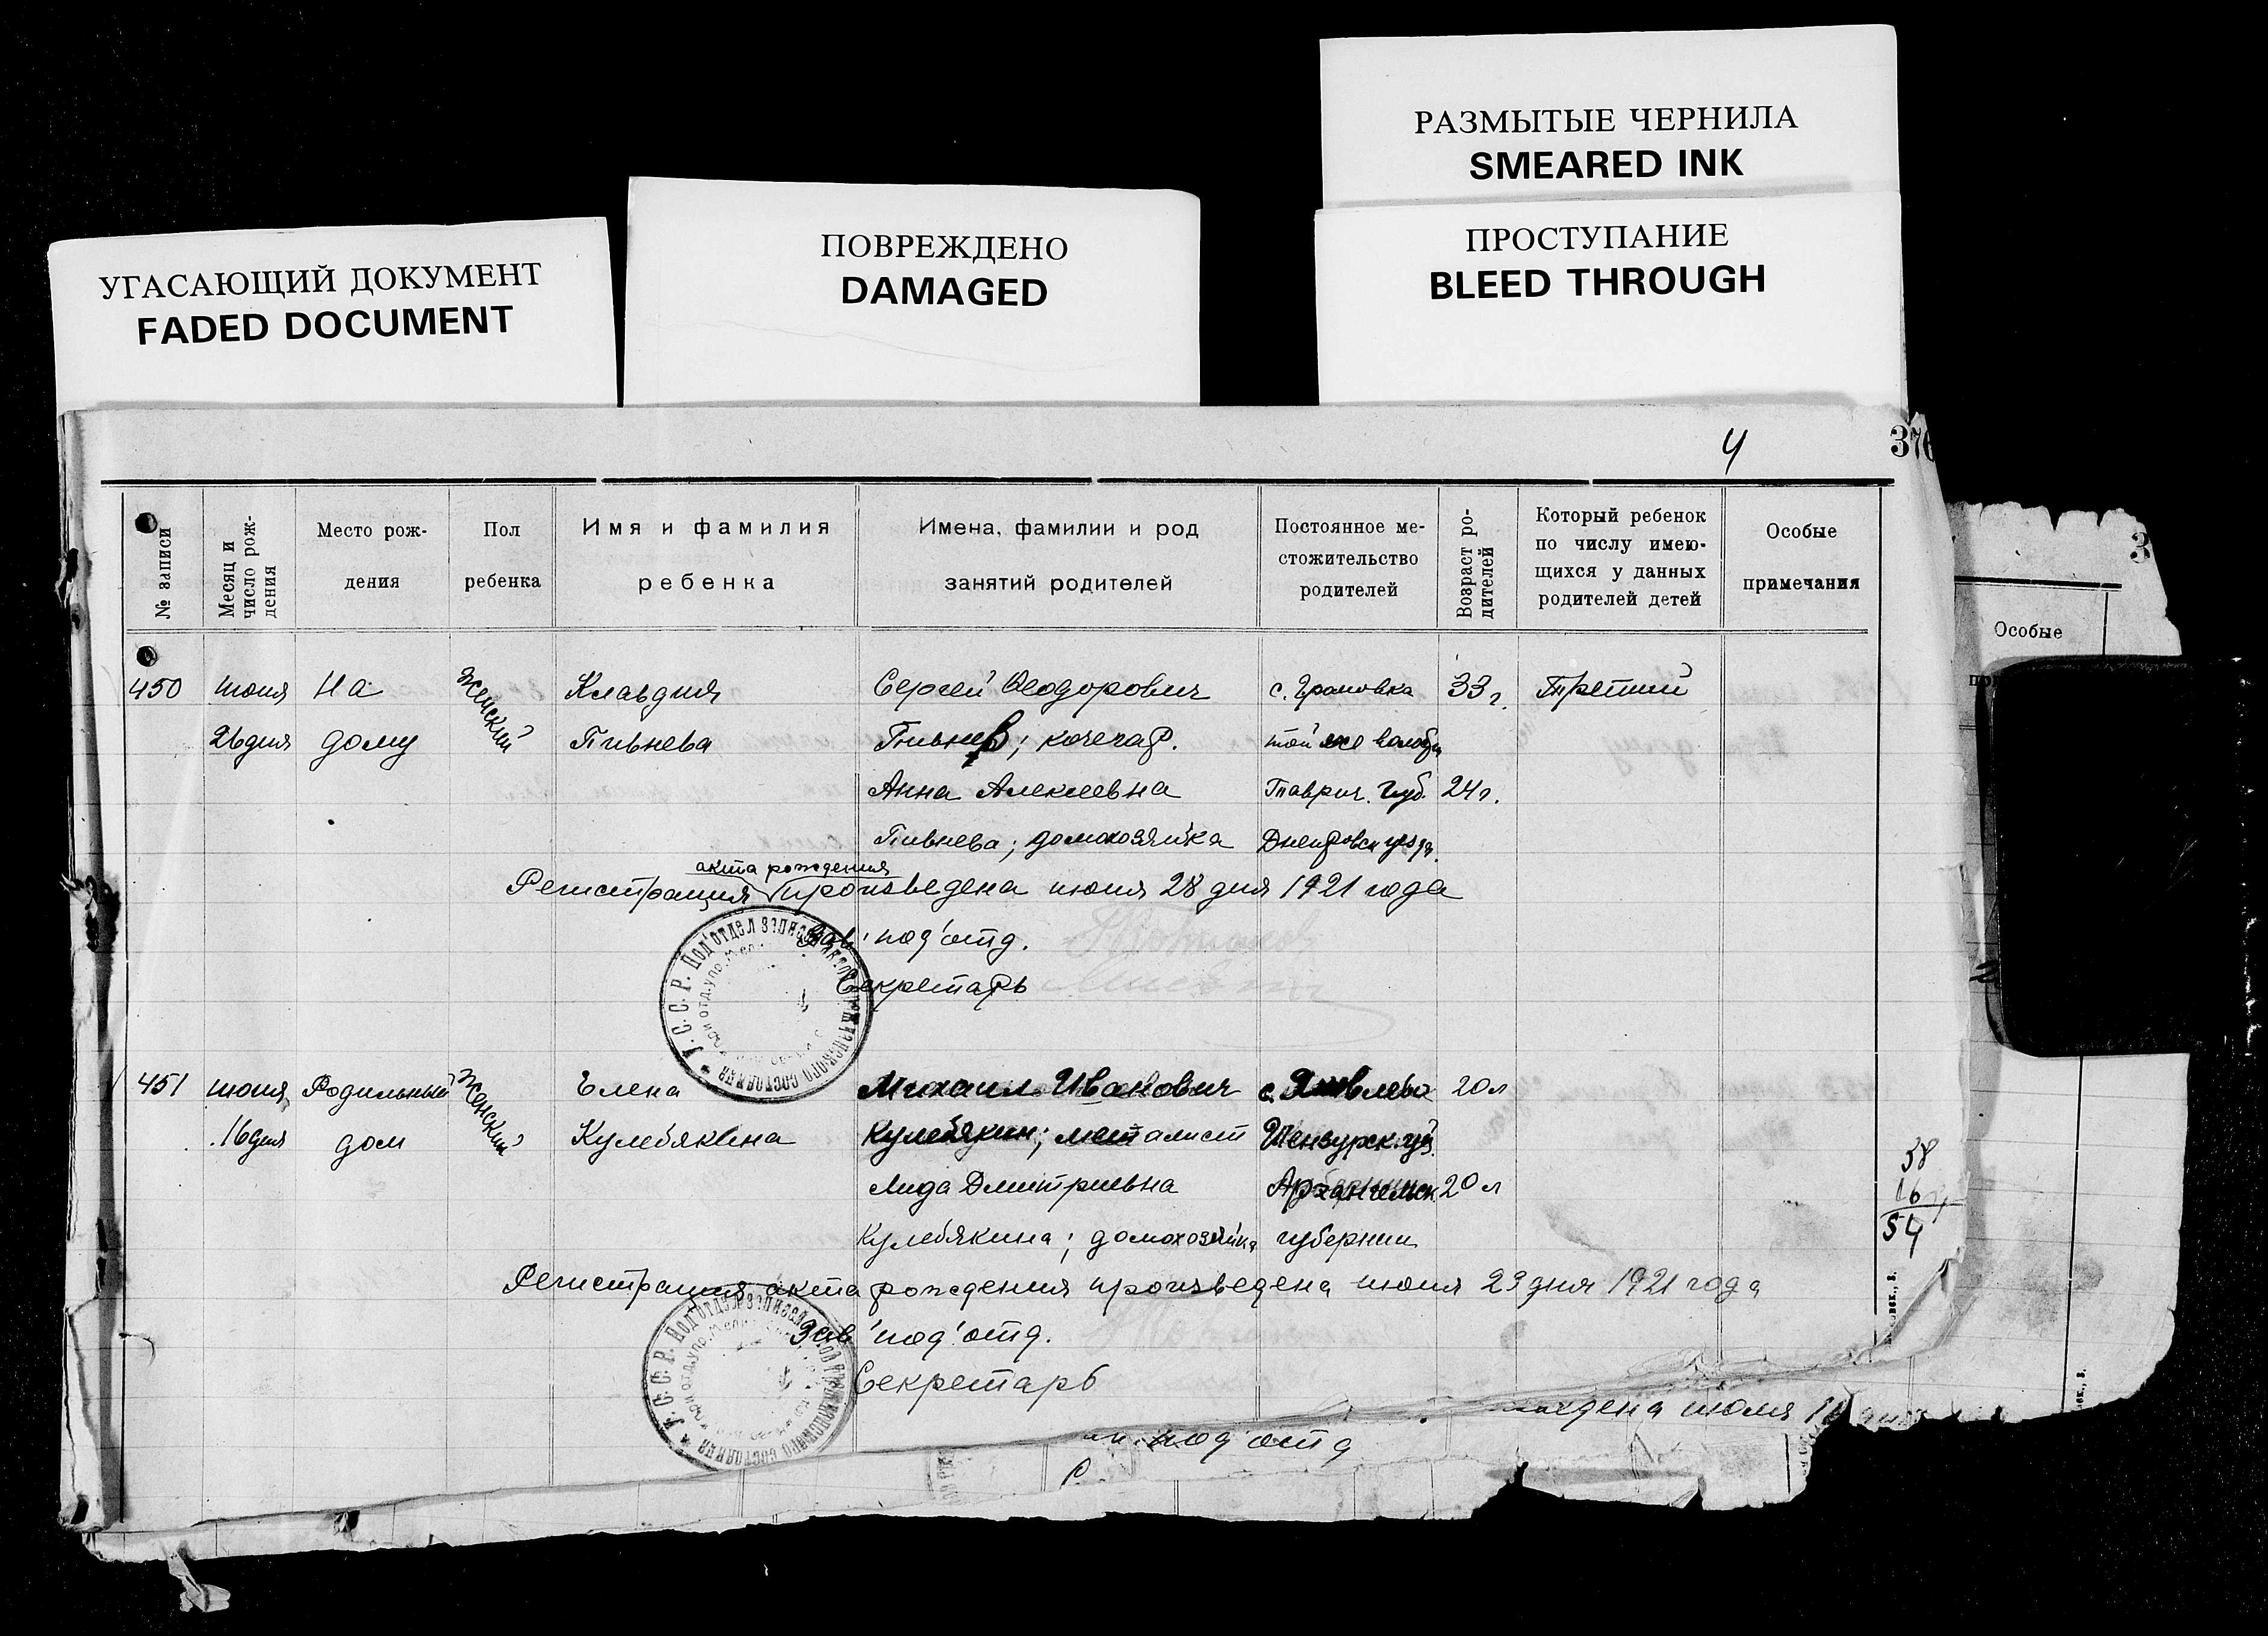 РАЗМЫТЫЕ ЧЕРНИЛА
SMEARED INK
ПРОСТУПАНИЕ
BLEED THROUGH
ПОВРЕЖДЕНО
DAMAGED
УГАСАЮЩИЙ ДОКУМЕНТ
FADED DOCUMENT
4
376
№ записи
Месяц и число рож-дения
Место рож-
дения
Пол
ребенка
Имя и фамилия
ребенка
Имена, фамилии и род
занятий родителей
Постоянное ме-
стожительство
родителей
Возраст ро-
дителей
Который ребенок
по числу имею-
щихся у данных
родителей детей
Особые
примечания
3
Особые
450 июня На Женский Клавдия Сергей Феодорович с. Громовка 33 г. Третий
26 дня дому Пивнева Пивнев; кочегар. той же
Анна Алексеевна Таврич. губ. 24 г.
Пивнева; домохозяйка Днепровск уезда.
акта рождения
Регистрация произведена июня 28 дня 1921 года
Зав. под'отд.
Секретарь
У. С. С. Р. Под'отдел записей актов гражданского состояния
451 июня Родильный Женский Елена Михаил Иванович с. 20 л
16 дня дом Кулебякина Кулебякин; металист Шенкурск. уез.
Лида Дмитриевна Архангельск 20 л
Кулебякина; домохозяйка губернии
38
16
54
Регистрация акта рождения произведена июня 29 дня 1921 года
Зав. под'отд.
Секретарь
У. С. С. Р. Под'отдел записей гражданского состояния
июля
под'отд